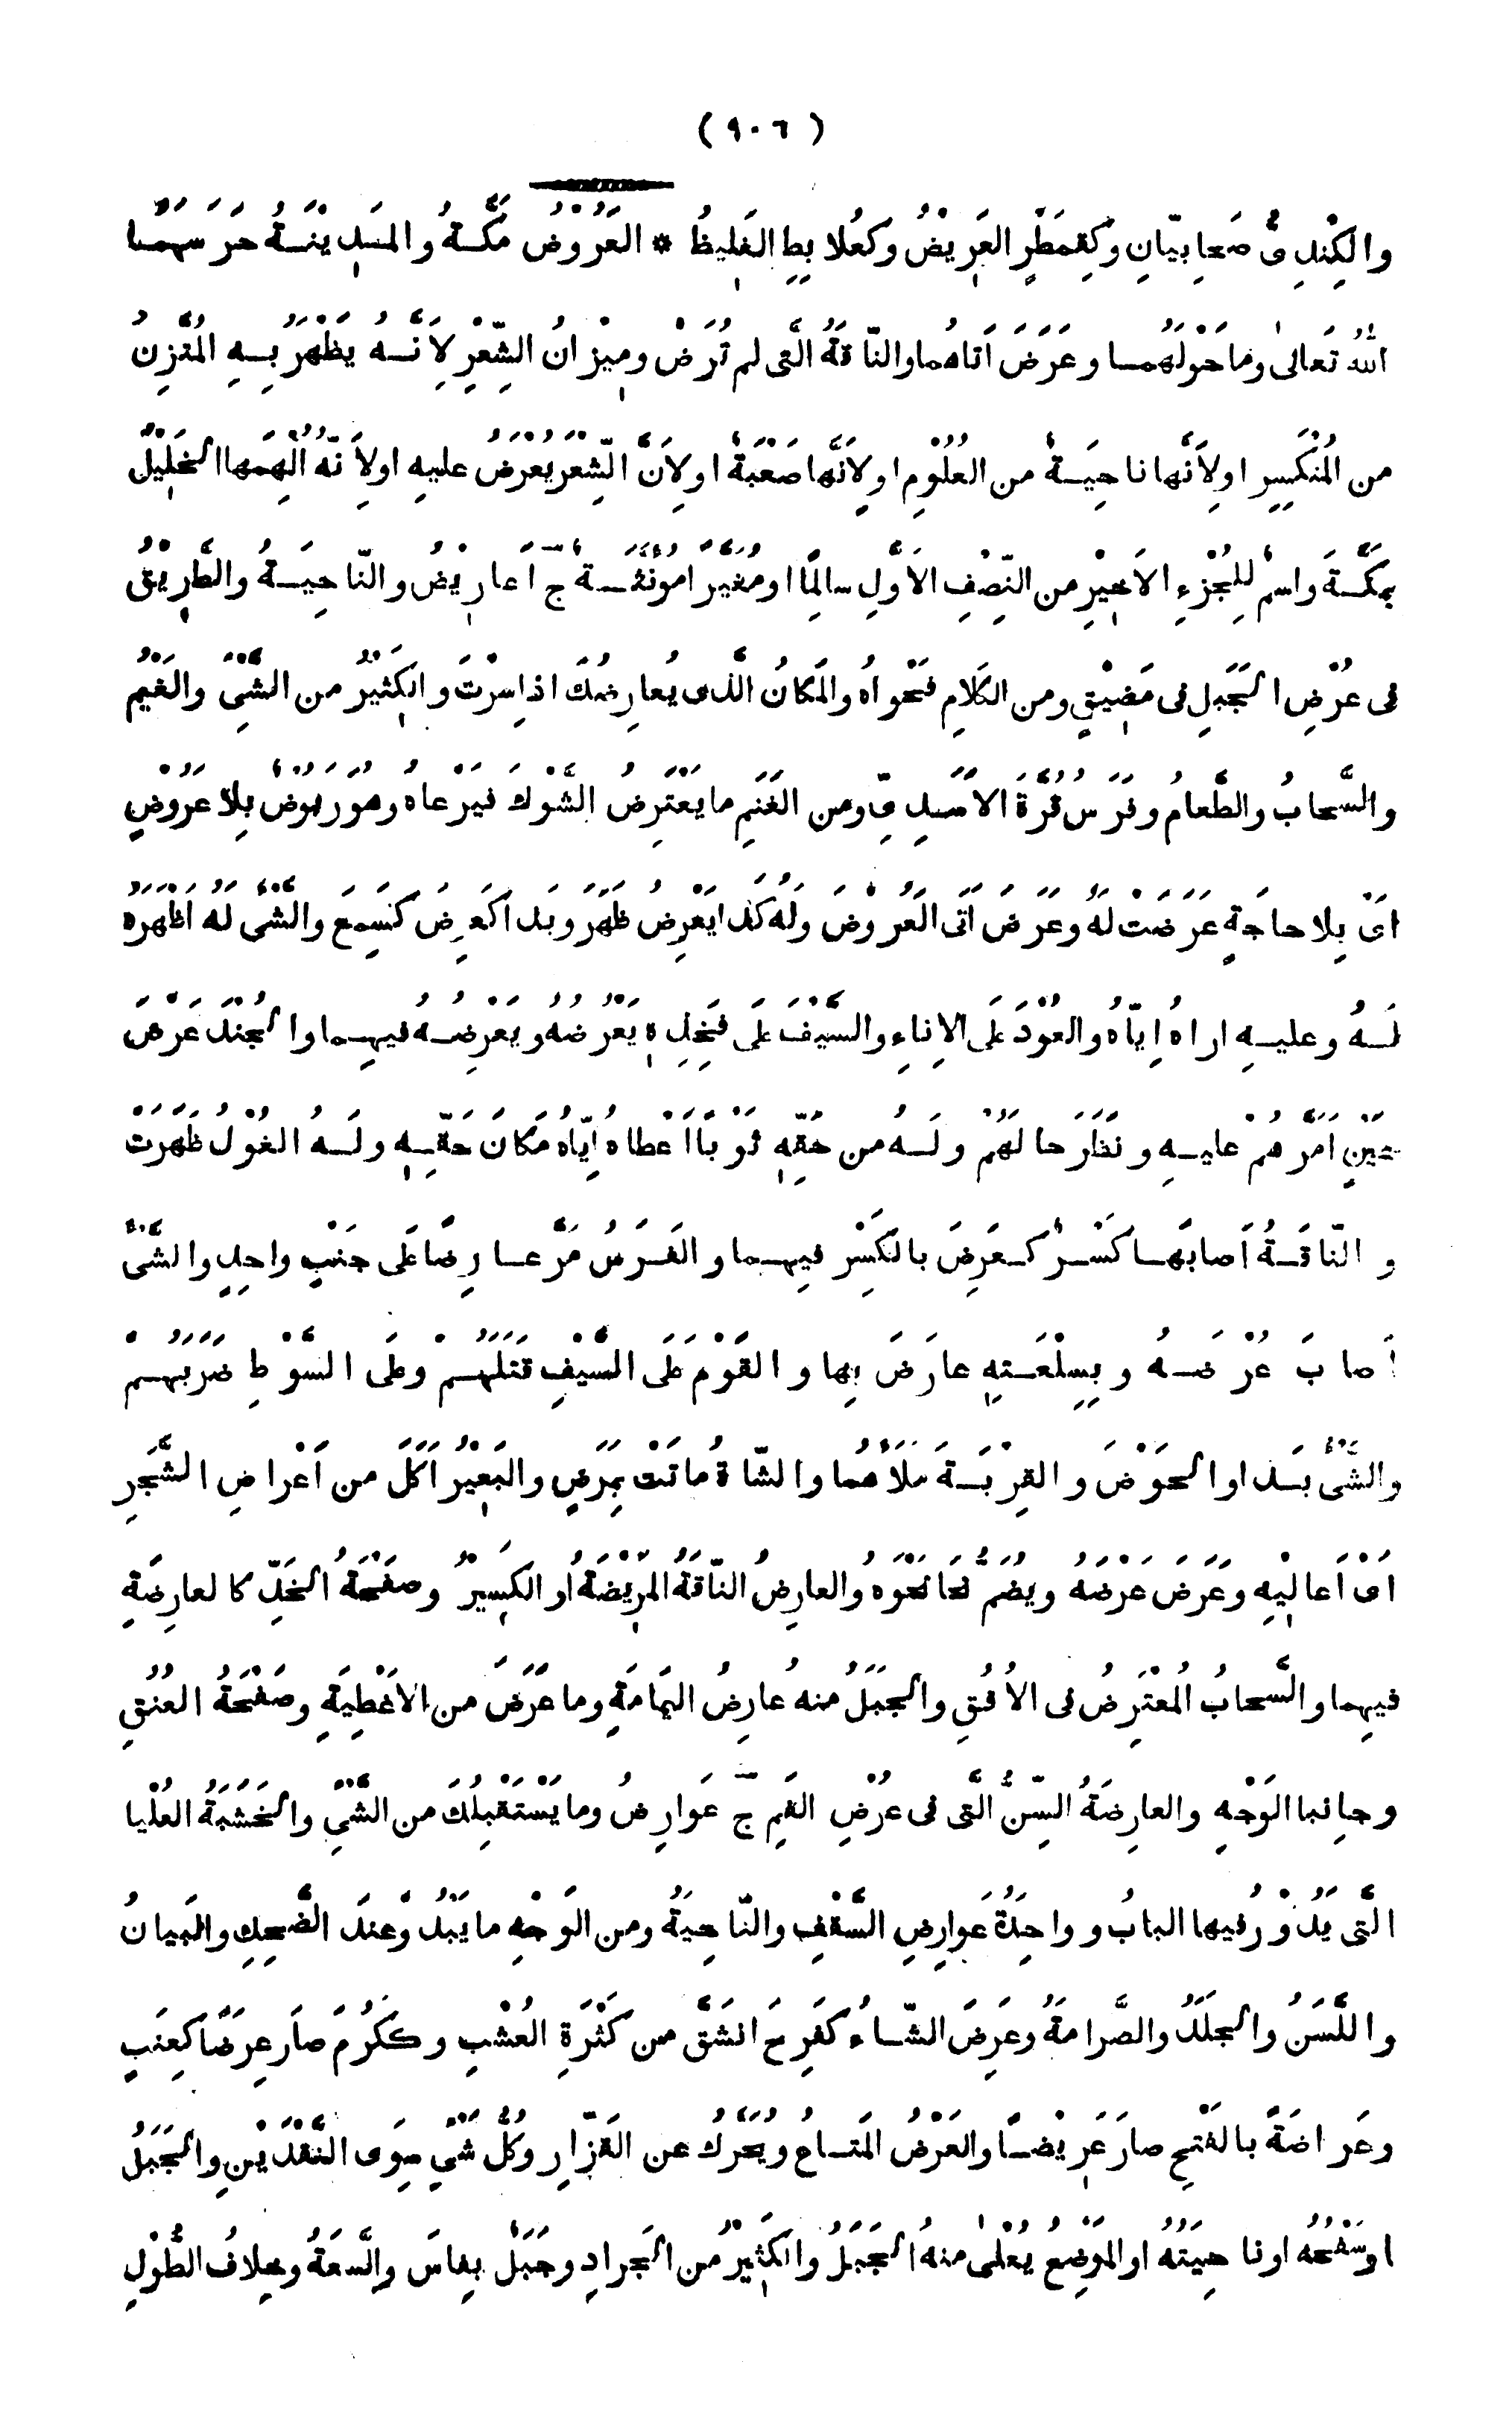 ( ٩٠٦ )
والكِنْدِىُّ صَحابِيّانِ وكقِمَطْرٍ العَرِيْضُ وكعُلابِطٍ الغَلِيظُ * العَرُوْضُ مَكَّةُ والمَدِيْنَةُ حَرَسَهُمَا
اللّٰهُ تَعالىٰ وما حَوْلَهُما وعَرَضَ اَتاهُما والنّاقَةُ الَّتى لم تُرَضْ ومِيْزانُ الشِّعْرِ لِاَنَّهُ يَظْهَرُ بِهِ المُتَّزِنُ
من المُنْكَسِرِ اولِاَنَّها ناحِيَةٌ من العُلُوْمِ اولِاَنَّها صَعْبَةٌ اولِاَنَّ الشِّعْرَ يُعْرَضُ عليهِ اولِاَنَّهُ اُلْهِمَها الخَلِيْلُ
بِمَكَّةَ واسْمٌ لِلجُزْءِ الاَخِيْرِ من النِّصْفِ الاَوَّلِ سالِمًا اومُغَيَّرًا مُؤنَّثَةٌ ج اَعارِيْضُ والنّاحِيَةُ والطَّرِيْقُ
فى عُرْضِ الجَبَلِ فى مَضِيْقٍ ومن الكَلامِ فَحْواهُ والمَكانُ الَّذى يُعارِضُكَ اذا سِرْتَ والكَثِيْرُ من الشَّىْءِ والغَيْمُ
والسَّحابُ والطَّعامُ وفَرَسُ قُرَّةَ الاَسَدِىِّ ومن الغَنَمِ ما يَعْتَرِضُ الشَّوْكَ فيَرْعاهُ وهو رَبُوْضٌ بِلا عَرُوْضٍ
اَىْ بِلا حاجَةٍ عَرَضَتْ لَهُ وعَرَضَ اَتَى العَرُوْضَ ولَهُ كَذا يَعْرِضُ ظَهَرَ وبَدا كَعَرِضَ كسَمِعَ والشَّىْءَ لَهُ اَظْهَرَهُ
لَهُ وعليهِ اراهُ اِيّاهُ والعُوْدَ عَلَى الاِناءِ والسَّيْفَ عَلَى فَخِذِهِ يَعْرِضُهُ ويَعْرُضُهُ فيهِما والجُنْدَ عَرْضَ
عَيْنٍ اَمَرَّهُمْ عليهِ ونَظَرَ حالَهُمْ ولَهُ من حَقِّهِ ثَوْبًا اَعْطاهُ اِيّاهُ مَكانَ حَقِّهِ ولَهُ الغُوْلُ ظَهَرَتْ
والنّاقَةُ اَصابَها كَسْرٌ كعَرِضَ بالكَسْرِ فيهِما والفَرَسُ مَرَّ عارِضًا عَلَى جَنْبٍ واحِدٍ والشَّىْءَ
اَصابَ عُرْضَهُ وبِسِلْعَتِهِ عارَضَ بِها والقَوْمَ عَلَى السَّيْفِ قَتَلَهُمْ وعَلَى السَّوْطِ ضَرَبَهُمْ
والشَّىْءُ بَدا والحَوْضَ والقِرْبَةَ مَلَأهُما والشّاةُ ماتَتْ بِمَرَضٍ والبَعِيْرُ اَكَلَ من اَعْراضِ الشَّجَرِ
اَىْ اَعالِيْهِ وعَرَضَ عَرْضَهُ ويُضَمُّ نَحا نَحْوَهُ والعارِضُ النّاقَةُ المَرِيْضَةُ اَوِ الكَسِيْرُ وصَفْحَةُ الخَدِّ كالعارِضَةِ
فيهِما والسَّحابُ المُعْتَرِضُ فى الاُفُقِ والجَبَلُ منهُ عارِضُ اليَمامَةِ وما عَرَضَ من الاَعْطِيَةِ وصَفْحَةُ العُنُقِ
وجانِبا الوَجْهِ والعارِضَةُ السِّنُّ الَّتى فى عُرْضِ الفَمِ ج عَوارِضُ وما يَسْتَقْبِلُكَ من الشَّىْءِ والخَشَبَةُ العُلْيا
الَّتى يَدُوْرُ فيها البابُ وواحِدَةُ عَوارِضِ السَّقْفِ والنّاحِيَةُ ومن الوَجْهِ ما يَبْدُو عندَ الضَّحِكِ والبَيانُ
واللَّسَنُ والجَلَدُ والصَّرامَةُ وعَرِضَ الشّاءُ كفَرِحَ انشَقَّ من كَثْرَةِ العُشْبِ وككَرُمَ صارَ عِرَضًا كعِنَبٍ
وعَراضَةً بالفَتْحِ صارَ عَرِيْضًا والعَرْضُ المَتاعُ ويُحَرَّكُ عن القَزّازِ وكُلُّ شَىْءٍ سِوَى النَّقْدَيْنِ والجَبَلُ
اوسَفْحُهُ اوناحِيَتُهُ اوالمَوْضِعُ يُعْلٰى منهُ الجَبَلُ والكَثِيْرُ من الجَرادِ وجَبَلٌ بِفاسَ والسَّعَةُ وخِلافُ الطُّوْلِ